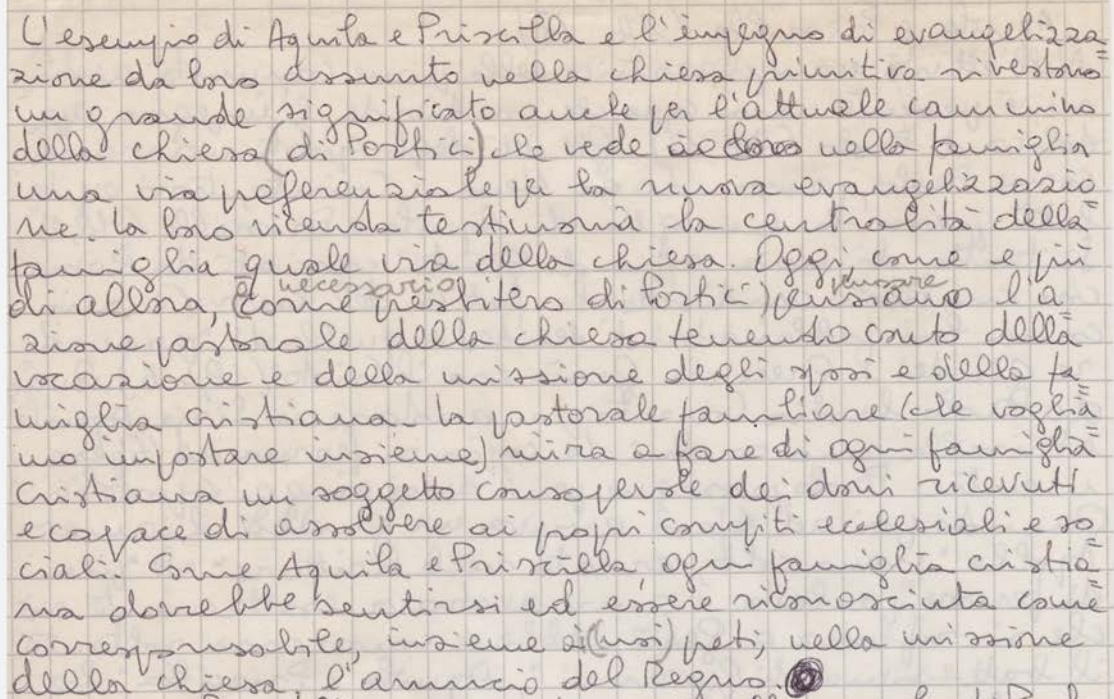 L'esempio di Aquila e Priscilla e l'impegno di evangelizza=
zione da loro assunto nella chiesa primitiva rivestono
un grande significato anche per l'attuale cammino
della chiesa (di Portici) che vede nella famiglia
una via preferenziale per la nuova evangelizzazio
ne. la loro vicenda testimonia la centralità della=
famiglia quale via della chiesa. Oggi, come e più
di allora, è necessario (come presbitero di Portici) pensare l'a
zione pastorale della chiesa tenendo conto della=
vocazione e della missione degli sposi e della fa=
miglia cristiana. la pastorale familiare (che voglia=
mo impostare insieme) mira a fare di ogni famiglia
cristiana un soggetto consapevole dei doni ricevuti
e capace di assolvere ai propri compiti ecclesiali e so=
ciali. Come Aquila e Priscilla, ogni famiglia cristia=
na dovrebbe sentirsi ed essere riconosciuta come
corresponsabile, insieme ai (noi) preti, nella missione
della chiesa, l'annuncio del Regno.